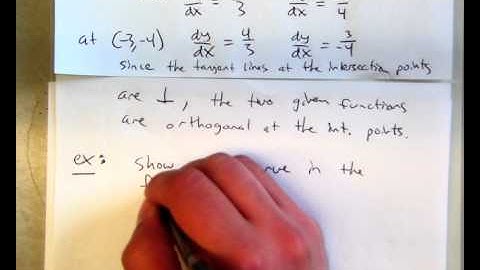 dy/dx = /3 dy/dx = /4
at (-3,-4) dy/dx = 4/3 dy/dx = 3/-4
since the tangent lines at the intersection points
are ⊥, the two given functions
are orthogonal at the int. points.
ex: show in the